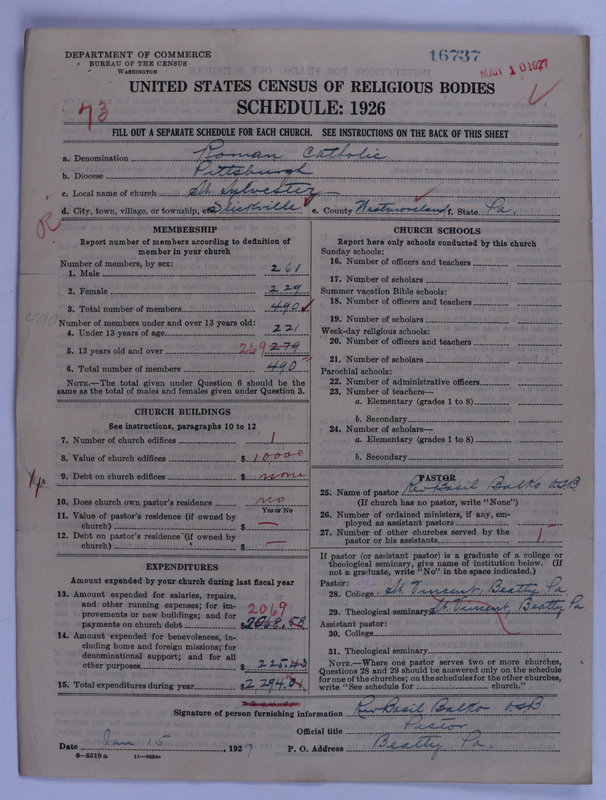 DEPARTMENT OF COMMERCE
BUREAU OF THE CENSUS
WASHINGTON
16737
MAR 10 1927
UNITED STATES CENSUS OF RELIGIOUS BODIES
SCHEDULE: 1926
73
FILL OUT A SEPARATE SCHEDULE FOR EACH CHURCH. SEE INSTRUCTIONS ON THE BACK OF THIS SHEET
a. Denomination Roman Catholic
b. Diocese Pittsburgh
c. Local name of church St. Sylvester
d. City, town, village, or township, etc. Slickville e. County Westmoreland f. State Pa.
MEMBERSHIP
Report number of members according to definition of member in your church
Number of members, by sex:
1. Male 261
2. Female 229
3. Total number of members 490
Number of members under and over 13 years old:
4. Under 13 years of age 221
5. 13 years old and over 269 279
6. Total number of members 490
NOTE.—The total given under Question 6 should be the
same as the total of males and females given under Question 3.
CHURCH BUILDINGS
See instructions, paragraphs 10 to 12
7. Number of church edifices 1
8. Value of church edifices $ 10,000
9. Debt on church edifices $ none
10. Does church own pastor's residence no
Yes or No
11. Value of pastor's residence (if owned by
church) $ —
12. Debt on pastor's residence (if owned by
church) $ —
EXPENDITURES
Amount expended by your church during last fiscal year
13. Amount expended for salaries, repairs,
and other running expenses; for im-
provements or new buildings; and for 2069
payments on church debt $ 2068.58
14. Amount expended for benevolences, in-
cluding home and foreign missions; for
denominational support; and for all
other purposes $ 225.43
15. Total expenditures during year $ 2294.01
CHURCH SCHOOLS
Report here only schools conducted by this church
Sunday schools:
16. Number of officers and teachers
17. Number of scholars
Summer vacation Bible schools:
18. Number of officers and teachers
19. Number of scholars
Week-day religious schools:
20. Number of officers and teachers
21. Number of scholars
Parochial schools:
22. Number of administrative officers
23. Number of teachers—
a. Elementary (grades 1 to 8)
b. Secondary
24. Number of scholars—
a. Elementary (grades 1 to 8)
b. Secondary
PASTOR
25. Name of pastor Rev Basil Balko OSB
(If church has no pastor, write "None")
26. Number of ordained ministers, if any, em-
ployed as assistant pastors
27. Number of other churches served by the
pastor or his assistants 1
If pastor (or assistant pastor) is a graduate of a college or
theological seminary, give name of institution below. (If
not a graduate, write "No" in the space indicated.)
Pastor:
28. College St. Vincent, Beatty Pa
29. Theological seminary St. Vincent, Beatty Pa
Assistant pastor:
30. College
31. Theological seminary
NOTE.—Where one pastor serves two or more churches,
Questions 28 and 29 should be answered only on the schedule
for one of the churches; on the schedules for the other churches,
write "See schedule for church."
Signature of person furnishing information Rev Basil Balko OSB
Official title Pastor
Date Jan 15, 1927 P. O. Address Beatty Pa.
8—5318a 11—9084